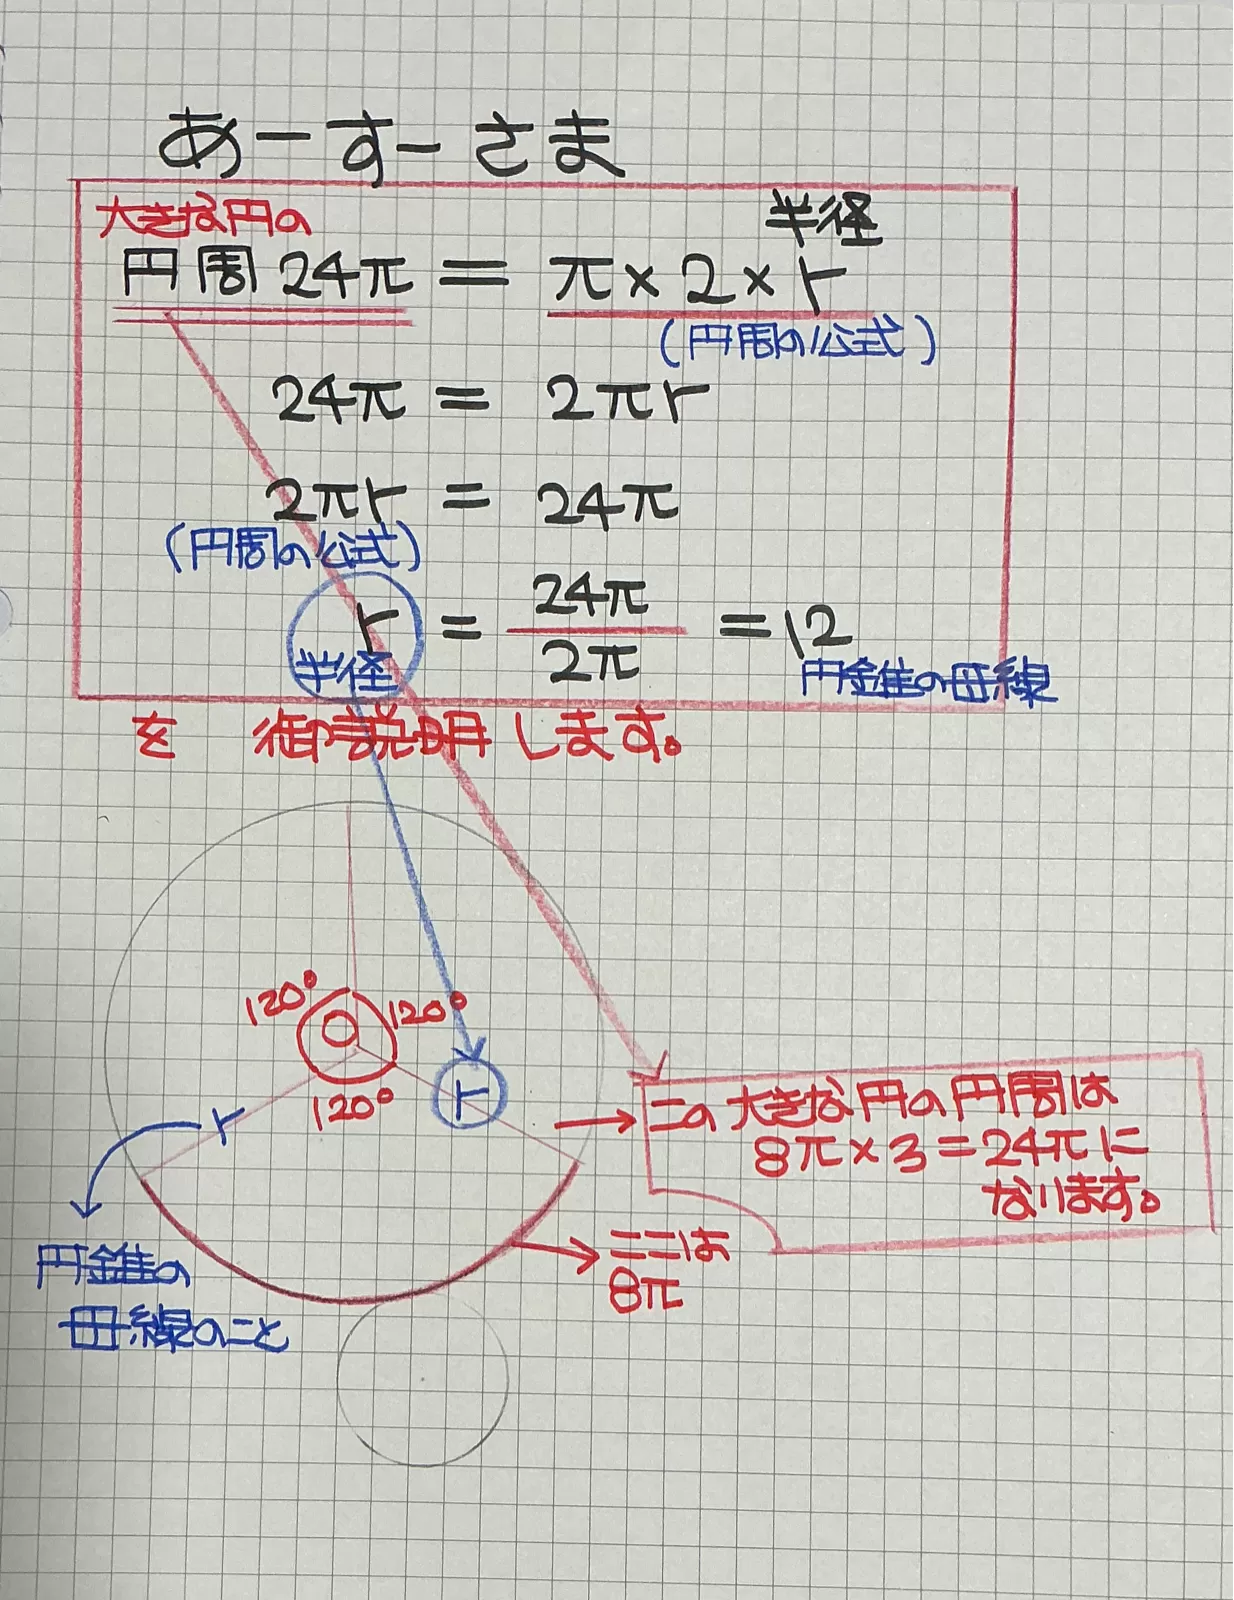 あーすーさま
大きな円の
半径
円周24π = π×2×r
(円周の公式)
24π = 2πr
2πr = 24π
(円周の公式)
r = 24π/2π = 12
半径
円錐の母線
を 御説明します。
120°
120°
120°
O
r
r
この大きな円の円周は
8π×3=24πに
なります。
ここは
8π
円錐の
母線のこと